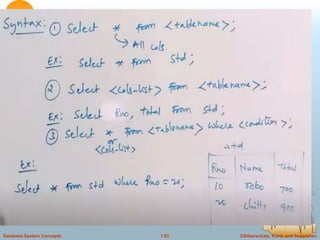 Syntax: ① Select * from <tablename>;
→ All cols.
Ex: Select * from Std;
② Select <cols-list> from <tablename>;
Ex: Select Rno, total from Std;
③ Select * from <tablename> where <condition>;
or
<cols-list>
std
Ex:
Rno Name Total
Select * from std where Rno = 20;
10 Robo 700
20 chitty 900
Database System Concepts
1.63
©Silberschatz, Korth and Sudarshan